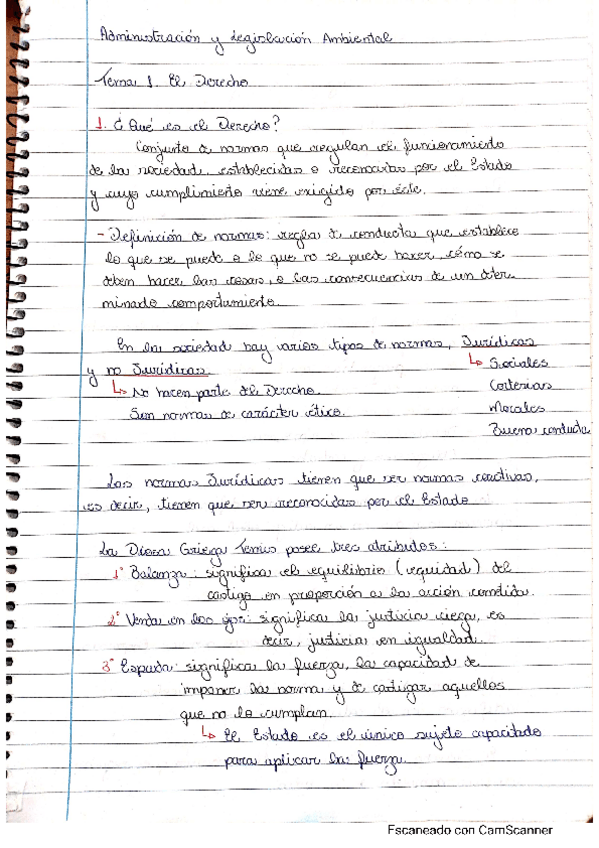 Administración y Legislación Ambiental
Tema 1. El Derecho
1. ¿Qué es el Derecho?
Conjunto de normas que regulan el funcionamiento
de la sociedad, establecidas o reconocidas por el Estado
y cuyo cumplimiento viene exigido por éste.
- Definición de normas: regla de conducta que establece
lo que se puede o lo que no se puede hacer, cómo se
deben hacer las cosas, o las consecuencias de un deter
minado comportamiento.
En la sociedad hay varios tipos de normas, Jurídicas
y no Jurídicas.
↳ Sociales
↳ No hacen parte del Derecho.
Cortesías
Son normas de carácter ético.
Morales
Buena conducta
Las normas Jurídicas tienen que ser normas coactivas,
es decir, tienen que ser reconocidas por el Estado
La Diosa Griega Temis posee tres atributos:
1º Balanza: significa el equilibrio (equidad) del
castigo en proporción a la acción cometida.
2º Venda en los ojos: significa la justicia ciega, es
decir, justicia en igualdad.
3º Espada: significa la fuerza, la capacidad de
imponer la norma y de castigar aquellos
que no lo cumplan.
↳ El Estado es el único sujeto capacitado
para aplicar la fuerza.
Escaneado con CamScanner